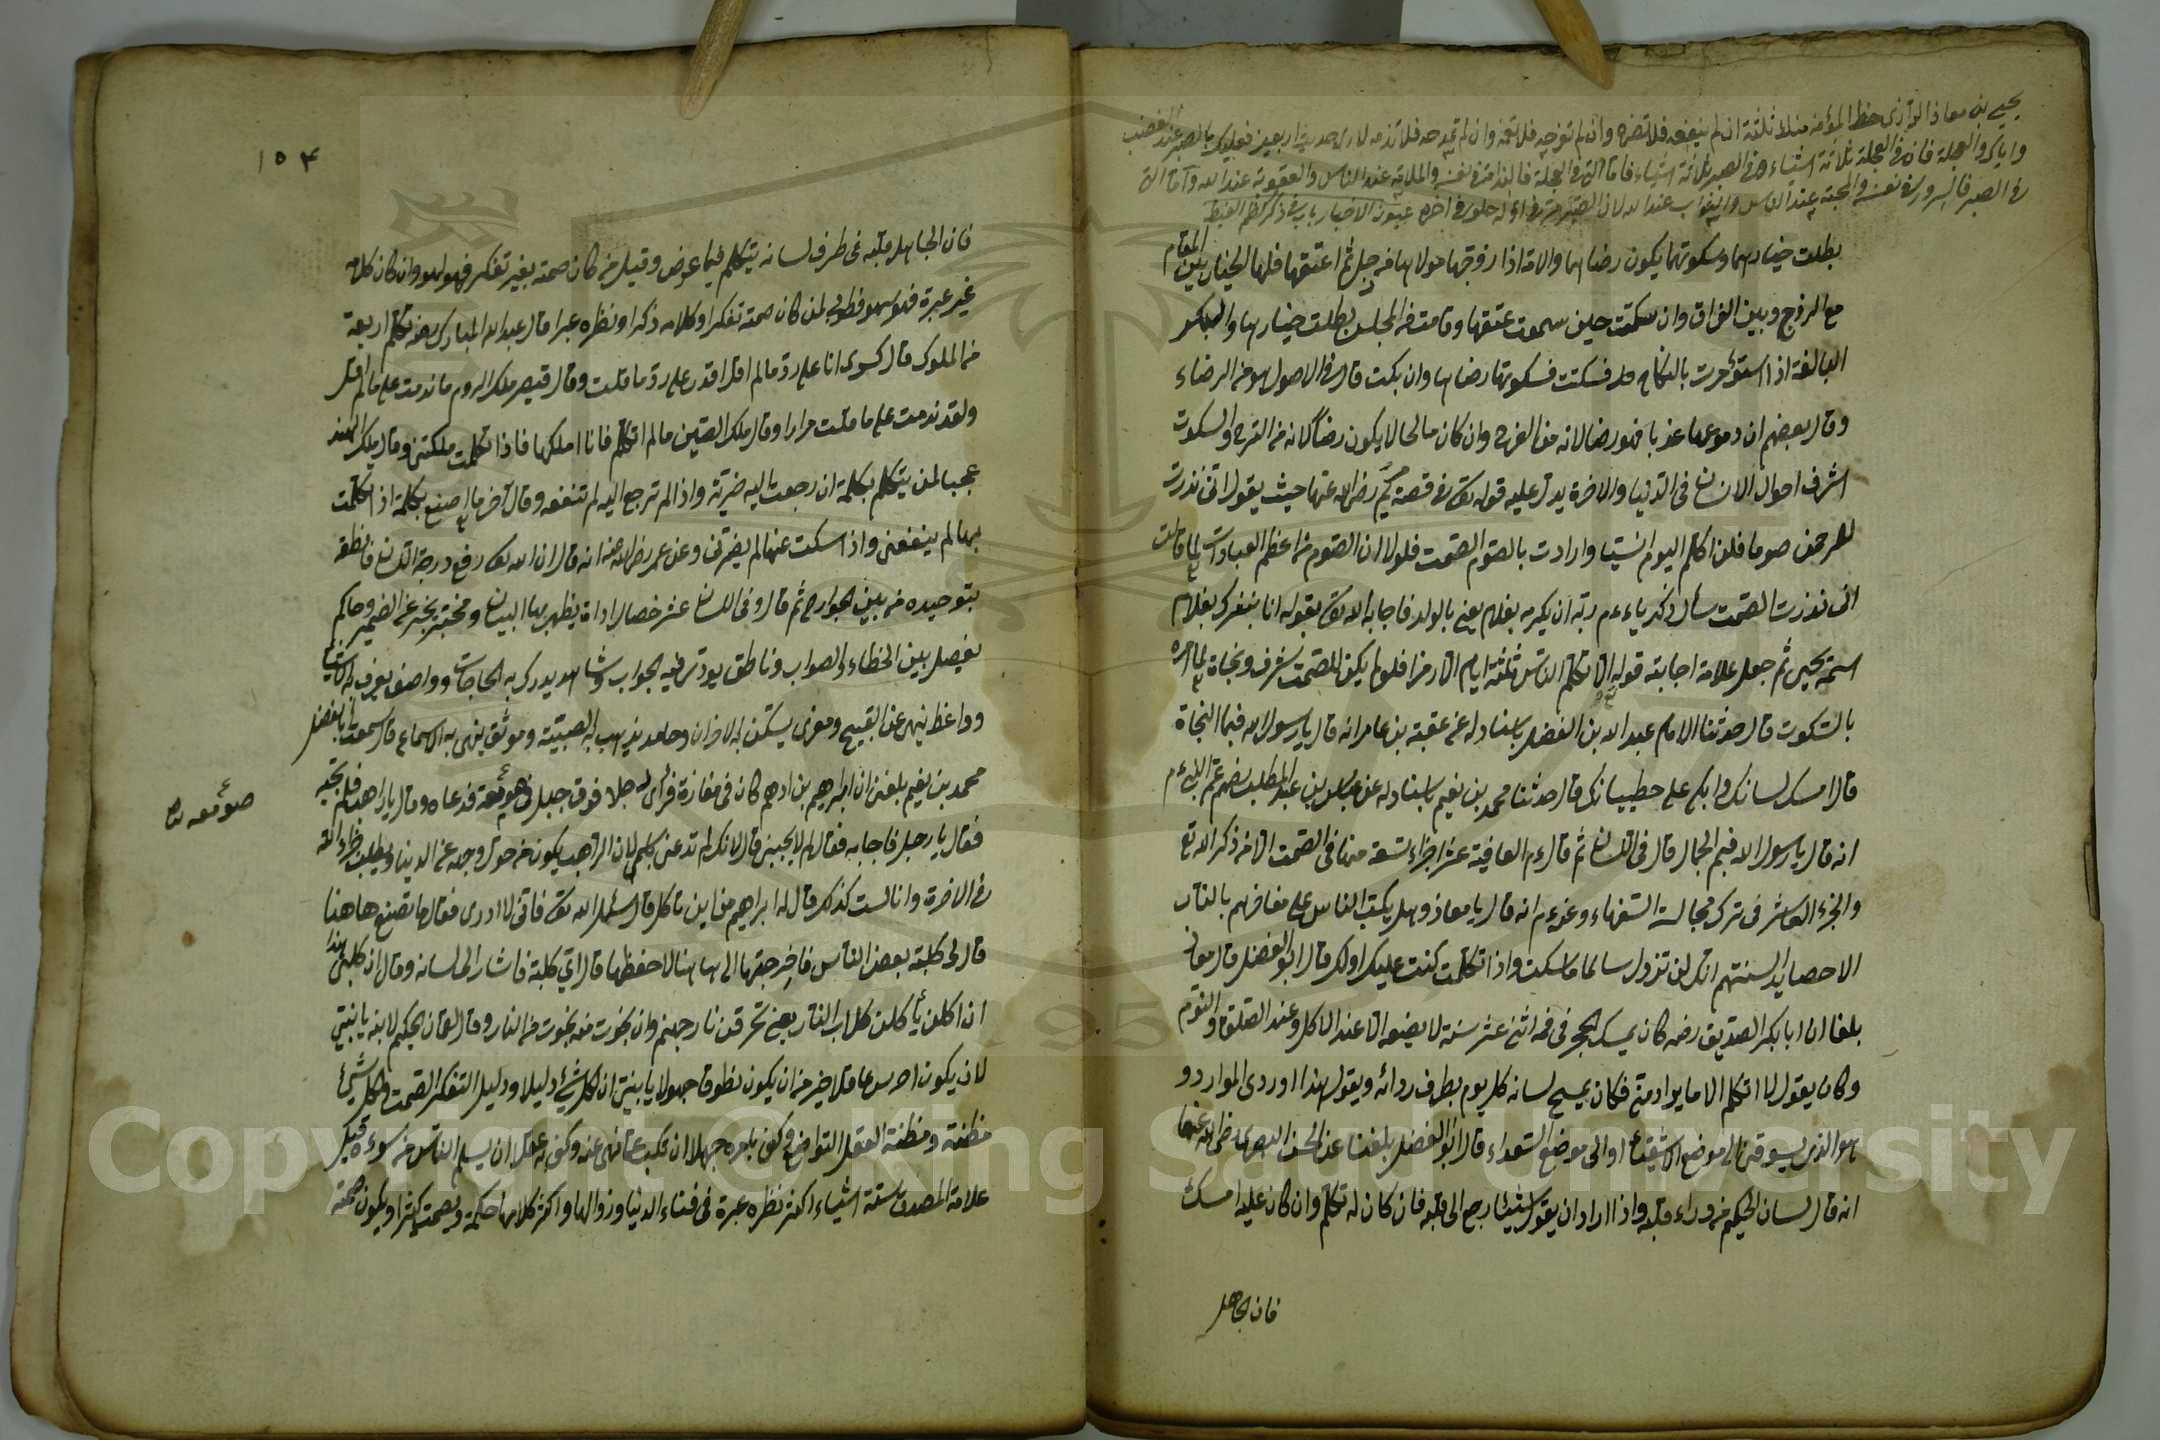 يحيى بن معاذ الرازي حظ المؤمن منك ثلثة ان لم ينفعه فلا تضره وان لم تفرحه فلا تغمه وان لم تمدحه فلا تذمه فعليك بالصبر عند الغضب
واياك والعجلة فان في العجلة ثلاثة اشياء وفي الصبر ثلاثة اشياء فاما التي في العجلة فالندامة في نفسه والملامة عند الناس والعقوبة عند الله واما التي
في الصبر فالسرور في نفسه والمحبة عند الناس والثواب عند الله لان الصبر مر في اوله حلو في اخره عيون الاخبار باب في ذكر كظم الغيظ
بطلت خيارهما وسكوتهما يكون رضاهما والامة اذا زوجها مولاها من رجل ثم اعتقها فلها الخيار بين المقام
مع الزوج وبين الفراق وان سكتت حين سمعت عتقها وقامت من المجلس بطلت خيارها والبكر
البالغة اذا استؤمرت بالنكاح فسكتت فسكوتها رضاها وان بكت قال في الاصول هو من الرضاء
وقال بعضهم ان دموعها عذبا فهو رضا لانه من الفرح وان كان مالحا لا يكون رضا لانه من الترح والسكوت
اشرف احوال الانسان في الدنيا والاخرة يدل عليه قوله تع في قصة مريم رضي الله عنها حيث يقول اني نذرت
للرحمن صوما فلن اكلم اليوم انسيا وارادت بالصوم الصمت فلولا ان الصوم من اعظم العبادات لما قالت
اني نذرت الصمت سأل زكرياء عم ربه ان يكرمه بغلام يعني بالولد فاجابه الله تع بقوله انا نبشرك بغلام
اسمه يحيى ثم جعل علامة اجابته قوله الا تكلم الناس ثلثة ايام الا رمزا فلو لم يكن للصمت شرف ونجاة لما امره
بالسكوت قال حدثنا الامام عبد الله بن الفضل باسناد له عن عقبة بن عامر انه قال يا رسول الله فيما النجاة
قال امسك لسانك وابك على خطيئاتك قال حدثنا محمد بن نعيم باسناد له عن عباس بن عبد المطلب رضه عم النبي عم
انه قال يا رسول الله فيم الجمال قال في اللسان ثم قال عم العافية عشر اجزاء تسعة منها في الصمت الا من ذكر الله تع
والجزء العاشر في ترك مجالسة السفهاء وعنه عم انه قال يا معاذ وهل يكب الناس على مناخرهم بالنار
الا حصائد السنتهم انك لن تزول سالما ما سكت واذا تكلمت كتبت عليك او لك قال ابو الفضل قال معاذ
بلغنا ان ابا بكر الصديق رضه كان يمسك الحجر في فمه اثني عشر سنة لا يضعه الا عند الاكل وعند الصلوة والنوم
وكان يقول لا اتكلم الا ما يواد مني فكان يمسح لسانه كل يوم بطرف ردائه ويقول هذا اوردني الموارد و
هو الذي يسوقني الى موضع الاشقياء او الى موضع السعداء قال ابو الفضل بلغنا عن الحسن البصري رضي الله عنهما
انه قال لسان الحكيم من وراء قلبه واذا اراد ان يقول شيئا رجع الى قلبه فان كان له تكلم وان كان عليه امسك
فان الجاهل
١٥٣
فان الجاهل قلبه على طرف لسانه يتكلم فيما عرض وقيل من كان صمته بغير تفكر فهو لهو وان كان كلامه
غير عبرة فهو سهو فطوبى لمن كان صمته تفكرا وكلامه ذكرا ونظره عبرا قال عبد الله المبارك رضه تكلم اربعة
من الملوك قال كسرى انا على رد ما لم اقل اقدر على رد ما قلت وقال قيصر ملك الروم ما ندمت على ما لم اقل
ولقد ندمت على ما قلت مرارا وقال ملك الصين ما لم اتكلم فانا املكها فاذا تكلمت ملكتني وقال ملك الهند
عجبا لمن يتكلم بكلمة ان رجعت اليه ضرته واذا لم ترجع اليه لم تنفعه وقال آخر ما اصنع بكلمة اذا تكلمت
بها لم ينفعني واذا سكت عنها لم يضرني وعن عمر رضي الله عنه انه قال ان الله تع رفع درجة اللسان فانطقه
بتوحيده من بين الجوارح ثم قال وفي اللسان عشر خصال اداة يظهر بها البيان ومخبر يخبر عن الضمير وحاكم
يفصل بين الخطاء والصواب وناطق يرد به الجواب وشاهد يدرك به الحاجات وواصف يعرف به الاشياء
وواعظ ينهى عن القبيح ومعزى يسكن به الاحزان وحامد يذهب به الضغينة وموثق ينهى به الاسماع قال سمعت ابا الفضل
محمد بن نعيم بلغني ان ابراهيم بن ادهم كان في مفازة فرأى رجلا فوق جبل في صومعة فدعاه وقال يا راهب فلم يجبه
صومعه
فقال يا رجل فاجابه فقال لم لا تجيبني قال لانك لم تدعني باسمي لان الراهب يكون من حول وجهه عن الدنيا ويطلب رضاء الله
في الاخرة وانا لست كذلك قال له ابراهيم من اين تأكل قال سئل الله تع فاني لا ادري فقال ما تصنع هاهنا
قال لي كلبة بعض الناس فاخرجتها الى هاهنا لاحفظها قال اي كلبة فاشار الى لسانه وقال ان كلبي هذا
ان اكلن يأكلن كلاب النار يعني تحرقن نار جهنم وان نجوت منه نجوت من النار وقال لقمان الحكيم لابنه يا بنيي
لان يكون اخرس عاقلا خير من ان يكون نطوقا جهولا يا بنيي ان لكل شيئ دليلا ودليل التفكر الصمت ولكل شيئ
مظنة ومظنة العقل التواضع وكفى بالمرء جهلا ان يركب ما نهي عنه وكفى به عقلا ان يسلم الناس من سوءه قيل
علامة المصدق ستة اشياء اكثر نظره عبرة في فناء الدنيا وزوالها واكثر كلامها حكمة ويصمت كثيرا ويكون صمته